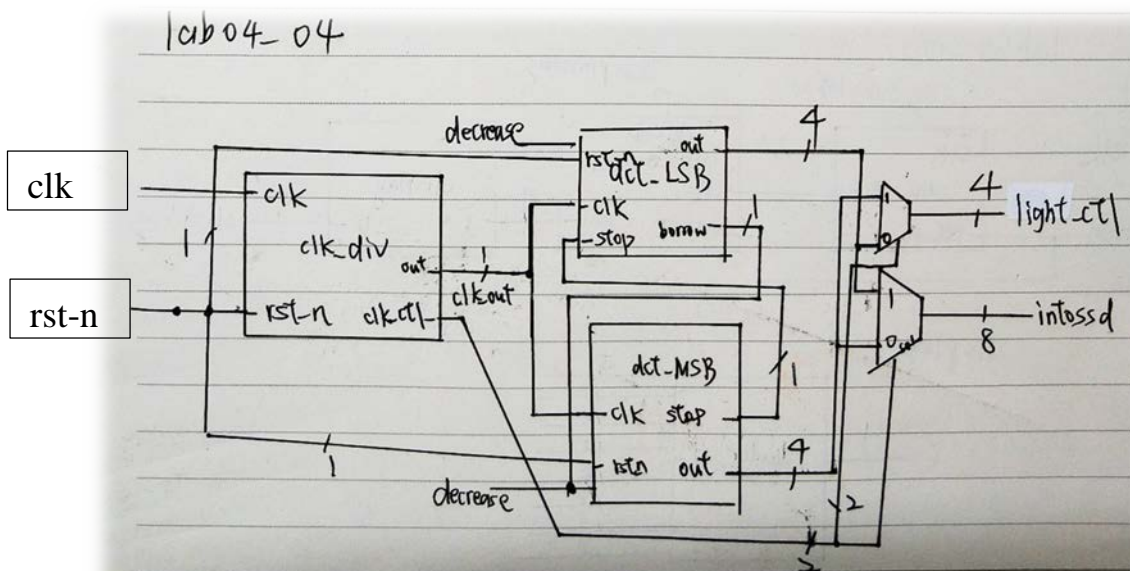 lab04_04
clk
rst-n
1
clk
clk_div
out
rst-n
clk_ctl
1
clk_out
decrease
rst-n
out
dct_LSB
clk
stop
borrow
4
1
dct_MSB
clk
stop
rstn
out
decrease
1
1
4
2
2
1
0
4
light_ctl
1
0
sel
8
intossd